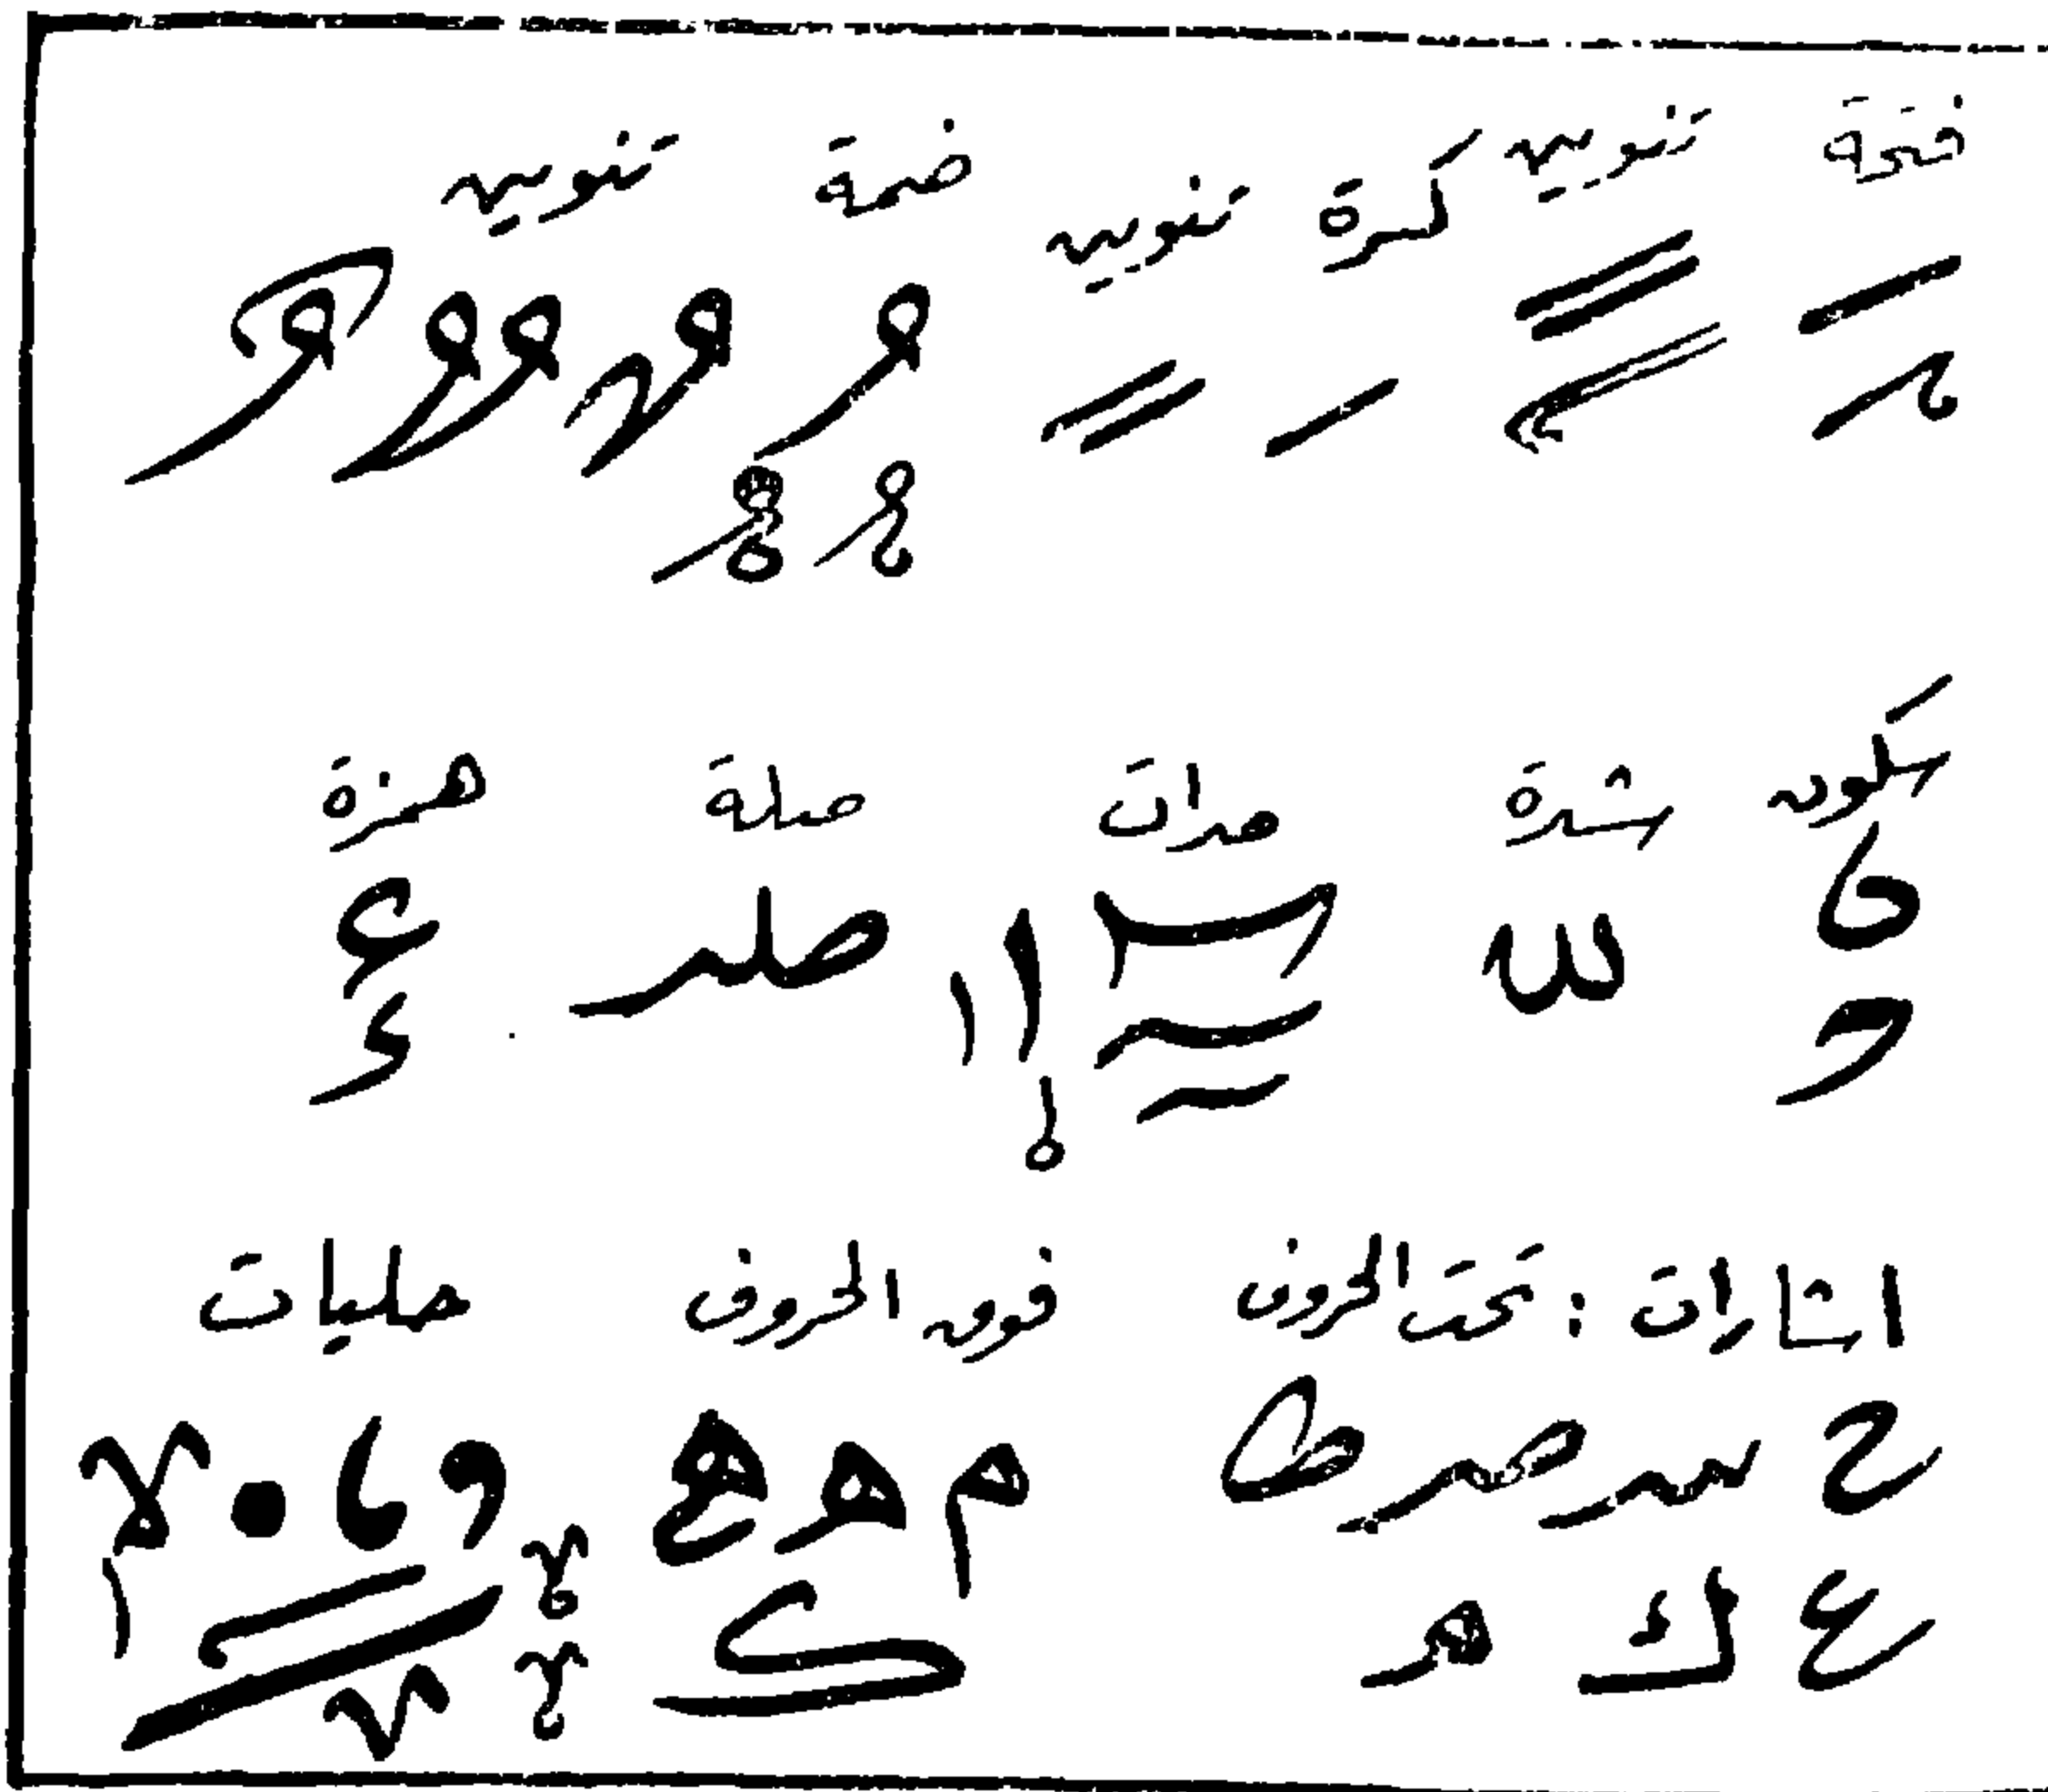 فتحة تنوين كسرة تنوين ضمة تنوين
سكون شدة مدات صلة همزة
صلـ
اشارات : تحت الحروف فوق الحروف حليات
ح سـ صـ ط م هـ ع
ع ك هـ ک